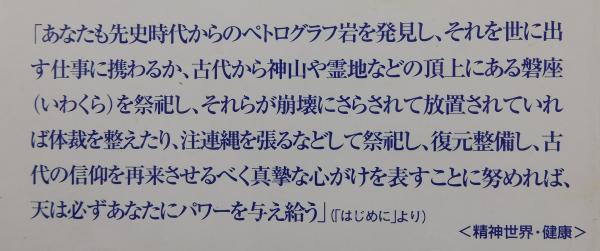 「あなたも先史時代からのペトログラフ岩を発見し、それを世に出
す仕事に携わるか、古代から神山や霊地などの頂上にある磐座
（いわくら）を祭祀し、それらが崩壊にさらされて放置されていれ
ば体裁を整えたり、注連縄を張るなどして祭祀し、復元整備し、古
代の信仰を再来させるべく真摯な心がけを表すことに努めれば、
天は必ずあなたにパワーを与え給う」（「はじめに」より）
＜精神世界・健康＞